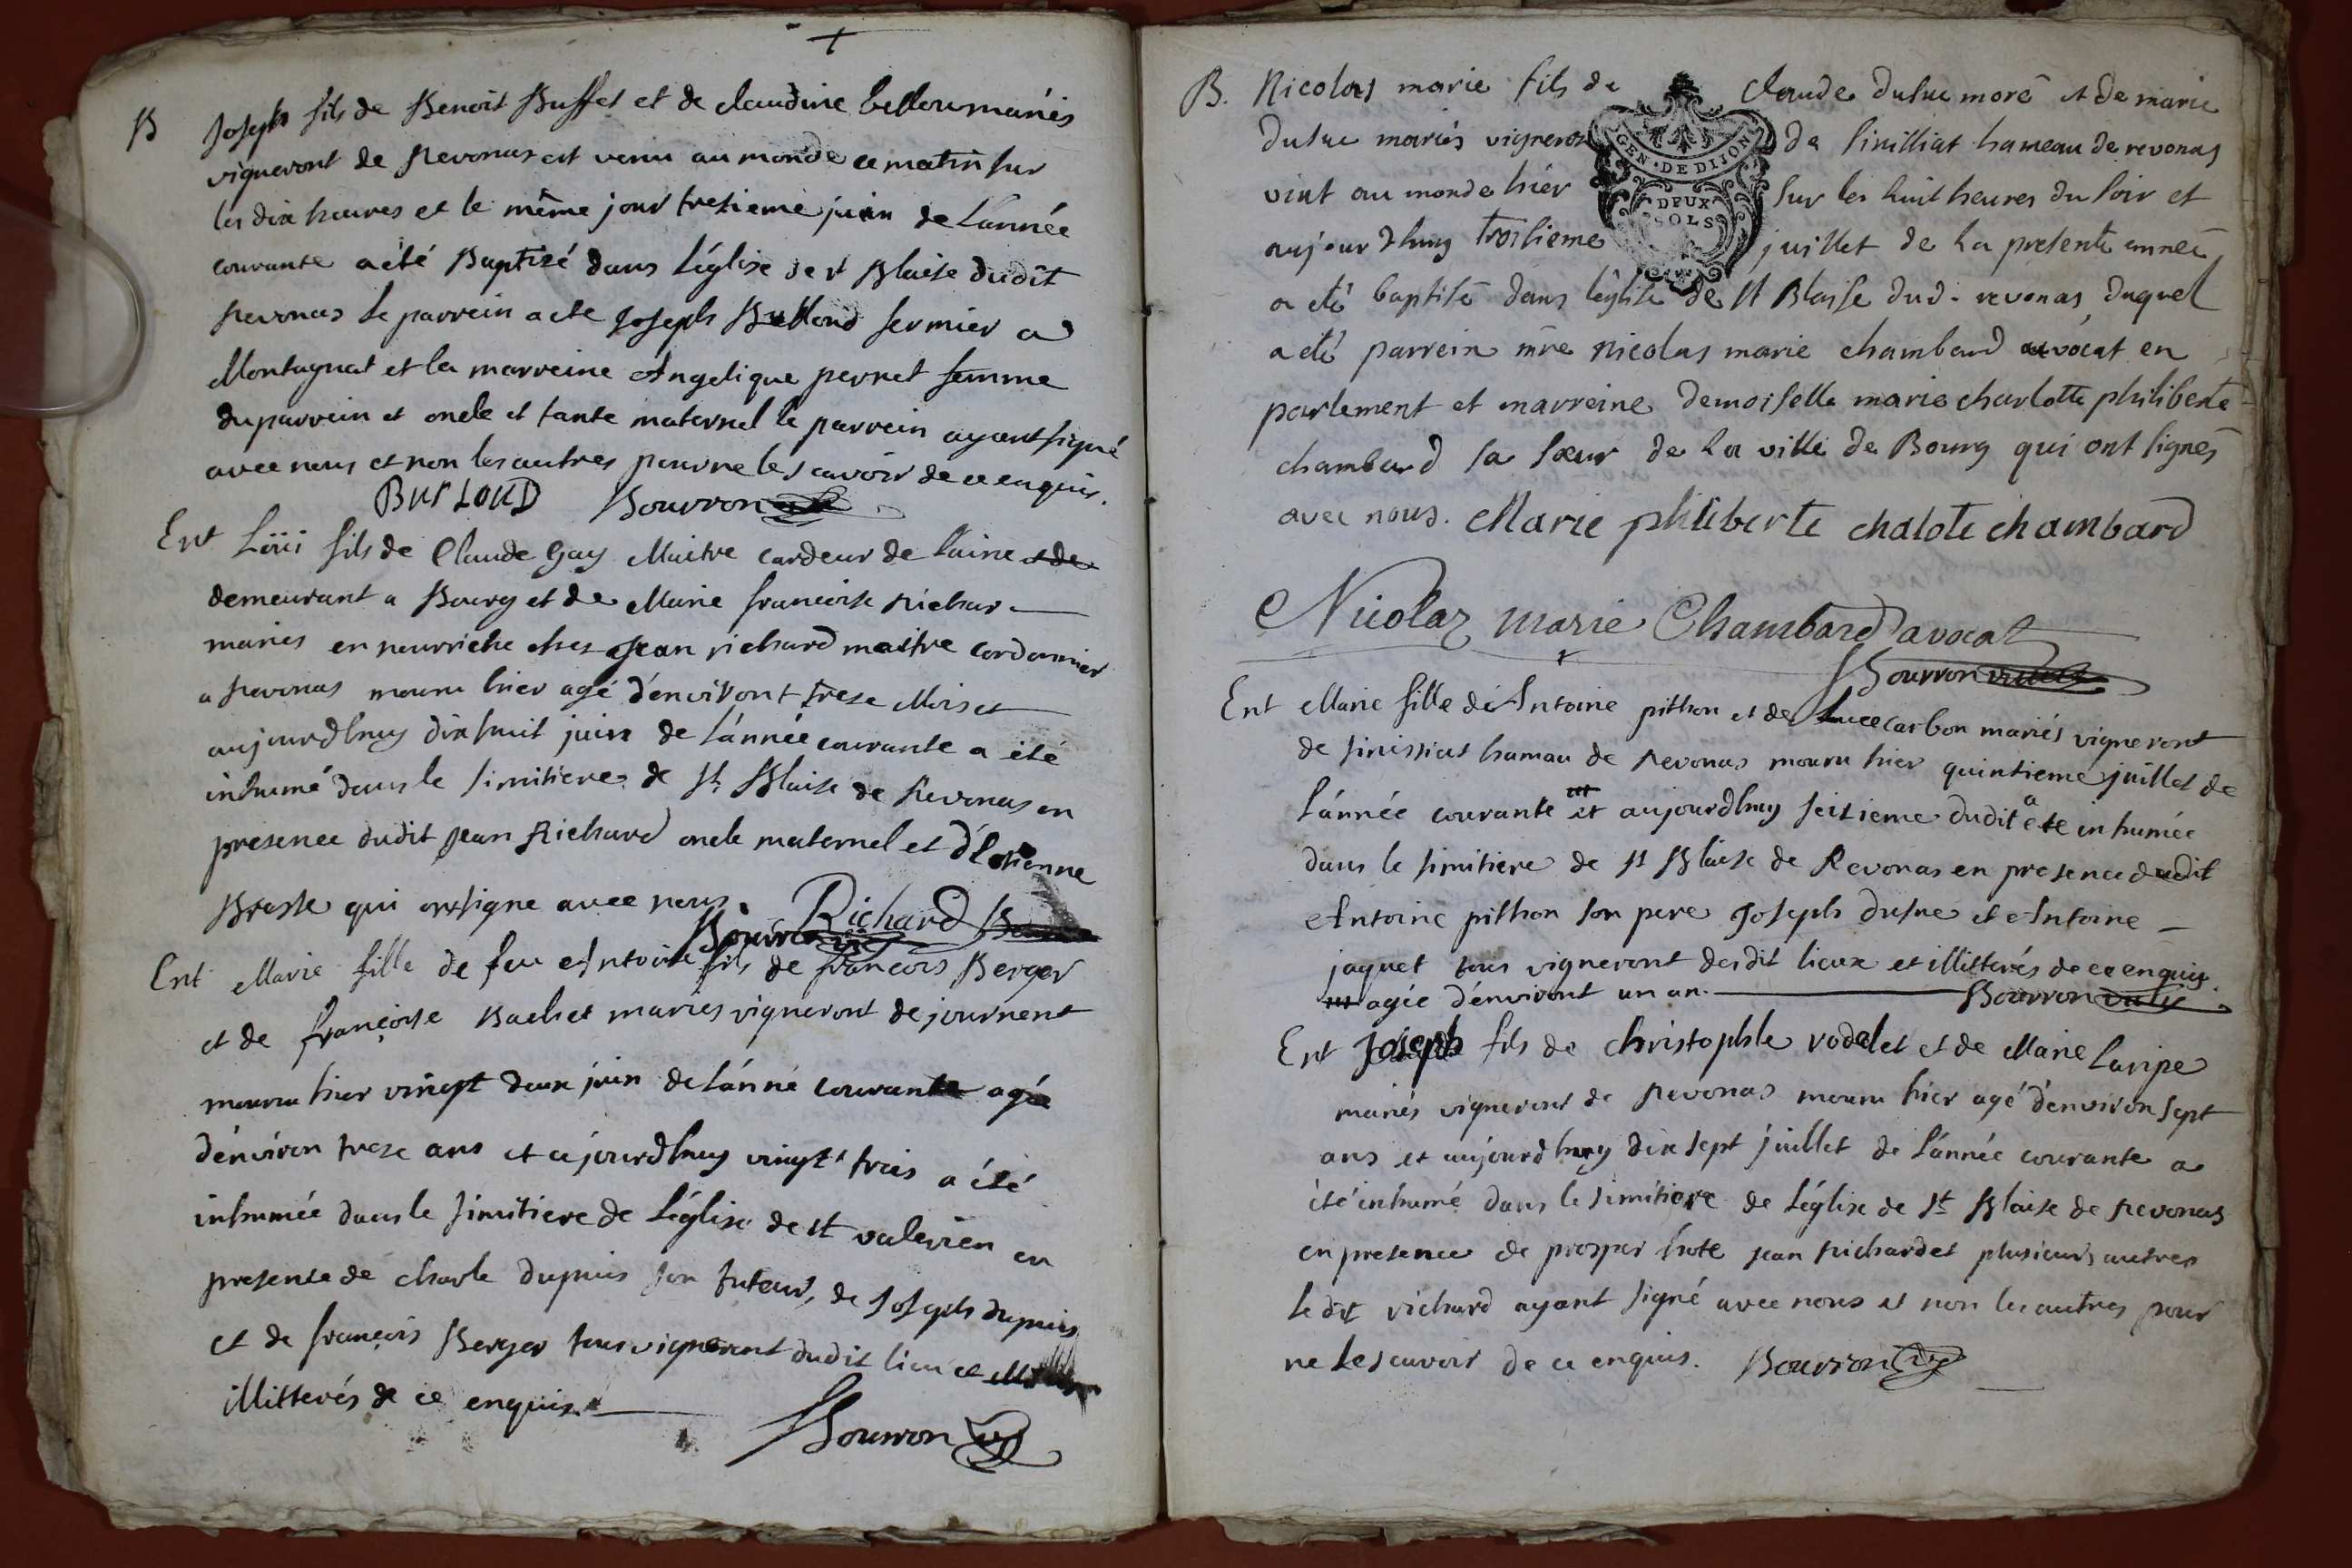 +
B Joseph fils de Benoit Buffet et de claudine belloumariés
vigneront de Revonas est venu au monde ce matin sur
les dix heures et le même jour tresieme juin de l'année
courante a été Baptizé dans l'église de st Blaise dudit
Revonas le parrein a ete Joseph Bulloud fermier a
Montagnat et la marreine Angelique perret femme
du parrein et oncle et tante maternel le parrein ayant signé
avec nous et non les autres pour ne le scavoir de ce enquis.
BUrLOUD Bourron
Ent Loüi fils de Claude Gay Maitre cardeur de laine et de
demeurant a Bourg et de Marie francoise Richar
mariés en nourriche ches Jean richard maitre cordonnier
a Revonas mouru hier agé d'environt treze Mois et
aujourdhuy dix huit juin de l'année courante a été
inhumé dans le simitiere de st Blaise de Revonas en
presence dudit Jean Richard oncle maternel et d'Etienne
Bresse qui ont signe avec nous. Richard
Bourron
Ent Marie fille de feu Antoine fils de francois Berger
et de françoise Bachet mariés vigneront de journent
mouru hier vingt deux juin de l'année courante agée
d'environ treze ans et aujourdhuy vingt trois a été
inhumée dans le simitiere de L'église de st valerien en
presente de charle dupuis son tuteur, de Joseph dupuis
et de françois Berger tous vigneront dudit lieu et
illitterés de ce enquis.
Bourron
B. Nicolas marie fils de claude dufue moré et de marie
dufue mariés vigneron de sinilliat hameau de revonas
vint au monde hiér sur les huit heures du soir et
aujourdhuy troisieme juillet de la presente année
a été baptisé dans l'église de st Blaise dud. revonas duquel
a été parrein mre nicolas marie chambard avocat en
parlement et marreine demoiselle marie charlotte philiberte
chambard sa sœur de la ville de Bourg qui ont signés
avec nous. Marie philiberte chalote chambard
GEN. DE DIJON
DEUX
SOLS
Nicolas marie Chambard avocat
Bourron
Ent Marie fille de Antoine pithon et de Luce carbon mariés vigneront
de sinissiat hamau de Revonas mouru hier quintieme juillet de
l'année courante et aujourdhuy seizieme dudit a ete inhumée
dans le simitiere de st Blaise de Revonas en presence dudit
Antoine pithon son pere Joseph dufue et Antoine
jaquet tous vigneront desdit lieux et illitterés de ce enquis.
agée d'environt un an. Bourron
Ent Joseph fils de christophle rodelet et de Marie Laripe
mariés vigneront de Revonas mouru hier agé d'environ sept
ans et aujourdhuy dix sept juillet de l'année courante a
été inhumé dans le simitiere de L'église de st Blaise de Revonas
en presence de prosper hote jean Richard et plusieurs autres
ledit richard ayant signé avec nous et non les autres pour
ne le scavoir de ce enquis. Bourron